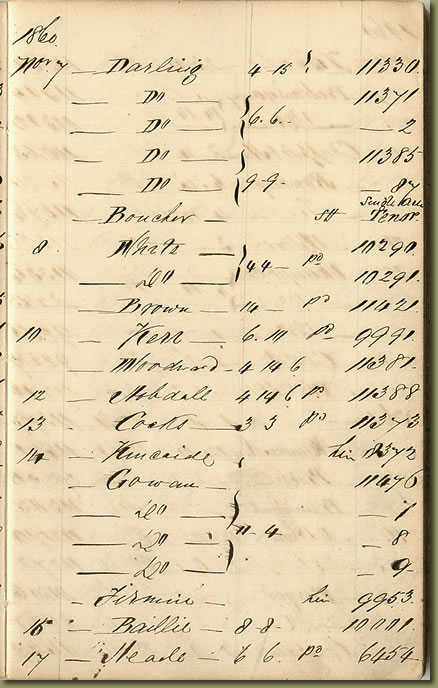 1860.
Nov 7 — Darling 4-15 11330
— Do — 11371
— Do — 6.6.. — 2
— Do — 11385
— Do — 9-9- — 87
— Boucher — Tenor
8 — White — 10290
— Do — 44 — pd 10291
— Brown — 14 — pd 11421
10 — Kerr — 6. pd 9991
— Woodward — 4 14 6 11381
12 — 4 14 6 pd 11388
13 — Cocks — 3 3 pd 11373
14 — Kincaide hire 8372
— Gowan — 11476
— Do — 7
— Do — 11-4 — 8
— Do — — 9
— Firmin — hire 9953
15 — Baillie — 8-8- 10001
17 — Neade — 6 6. pd 6454